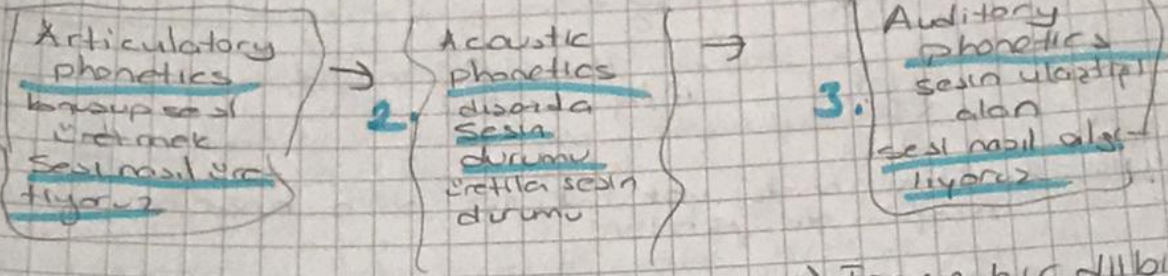 Articulatory
phonetics
konuşup sesi
üretmek
Sesi nasıl üre
tiyoruz
→
2.
Acoustic
phonetics
dışarıda
Sesin
durumu
üretilen sesin
durumu
→
3.
Auditory
phonetics
sesin ulaştığı
alan
sesi nasıl algı-
lıyoruz